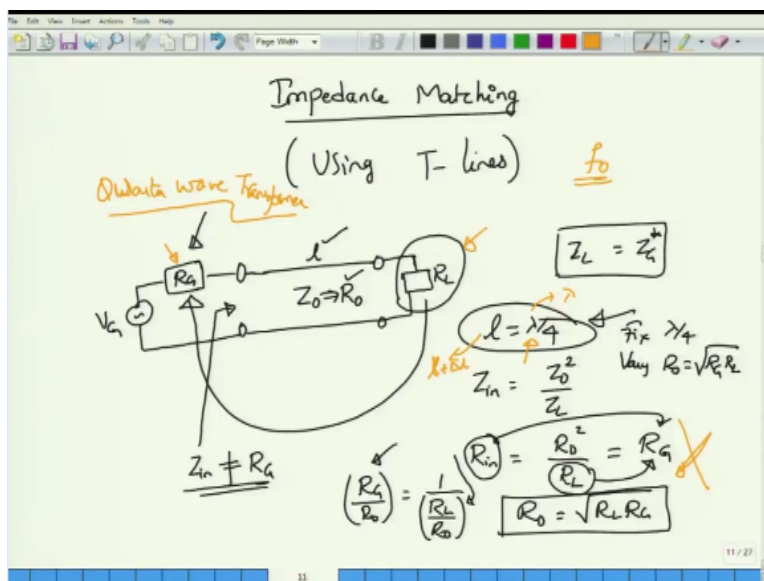 File Edit View Insert Actions Tools Help
Page Width
B I
Impedance Matching
(Using T-lines)
f₀
Qubarta wave Transformer
l
R_G
Z₀ ⇒ R₀
R_L
V_G
Z_L = Z_G*
l = λ/4
λ
l+Δl
Fix λ/4
Vary R₀ = √R_G R_L
Z_in = Z₀² / Z_L
Z_in ≠ R_G
R_in = R₀² / R_L = R_G
(R_G / R₀) = 1 / (R_L / R₀)
R₀ = √R_L R_G
11 / 27
11